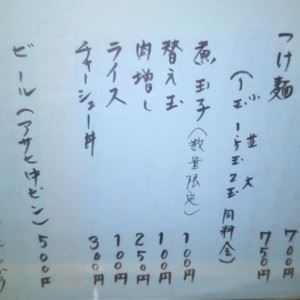 つけ麺 700円
小 並 大 750円
(1玉 1.5玉 2玉 同料金)
煮玉子(数量限定) 100円
替え玉 100円
肉増し 250円
ライス 100円
チャーシュー丼 300円
ビール(アサヒ中ビン) 500円